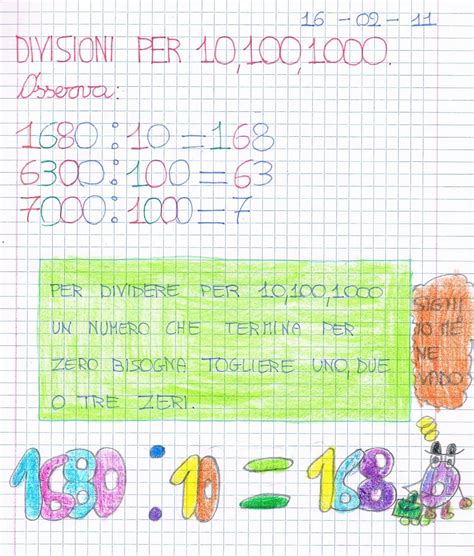 16-02-11
DIVISIONI PER 10,100,1000.
Osserva:
1680:10=168
6300:100=63
7000:1000=7
PER DIVIDERE PER 10,100,1000
UN NUMERO CHE TERMINA PER
ZERO BISOGNA TOGLIERE UNO, DUE
O TRE ZERI.
NE
VADO
1680:10=168